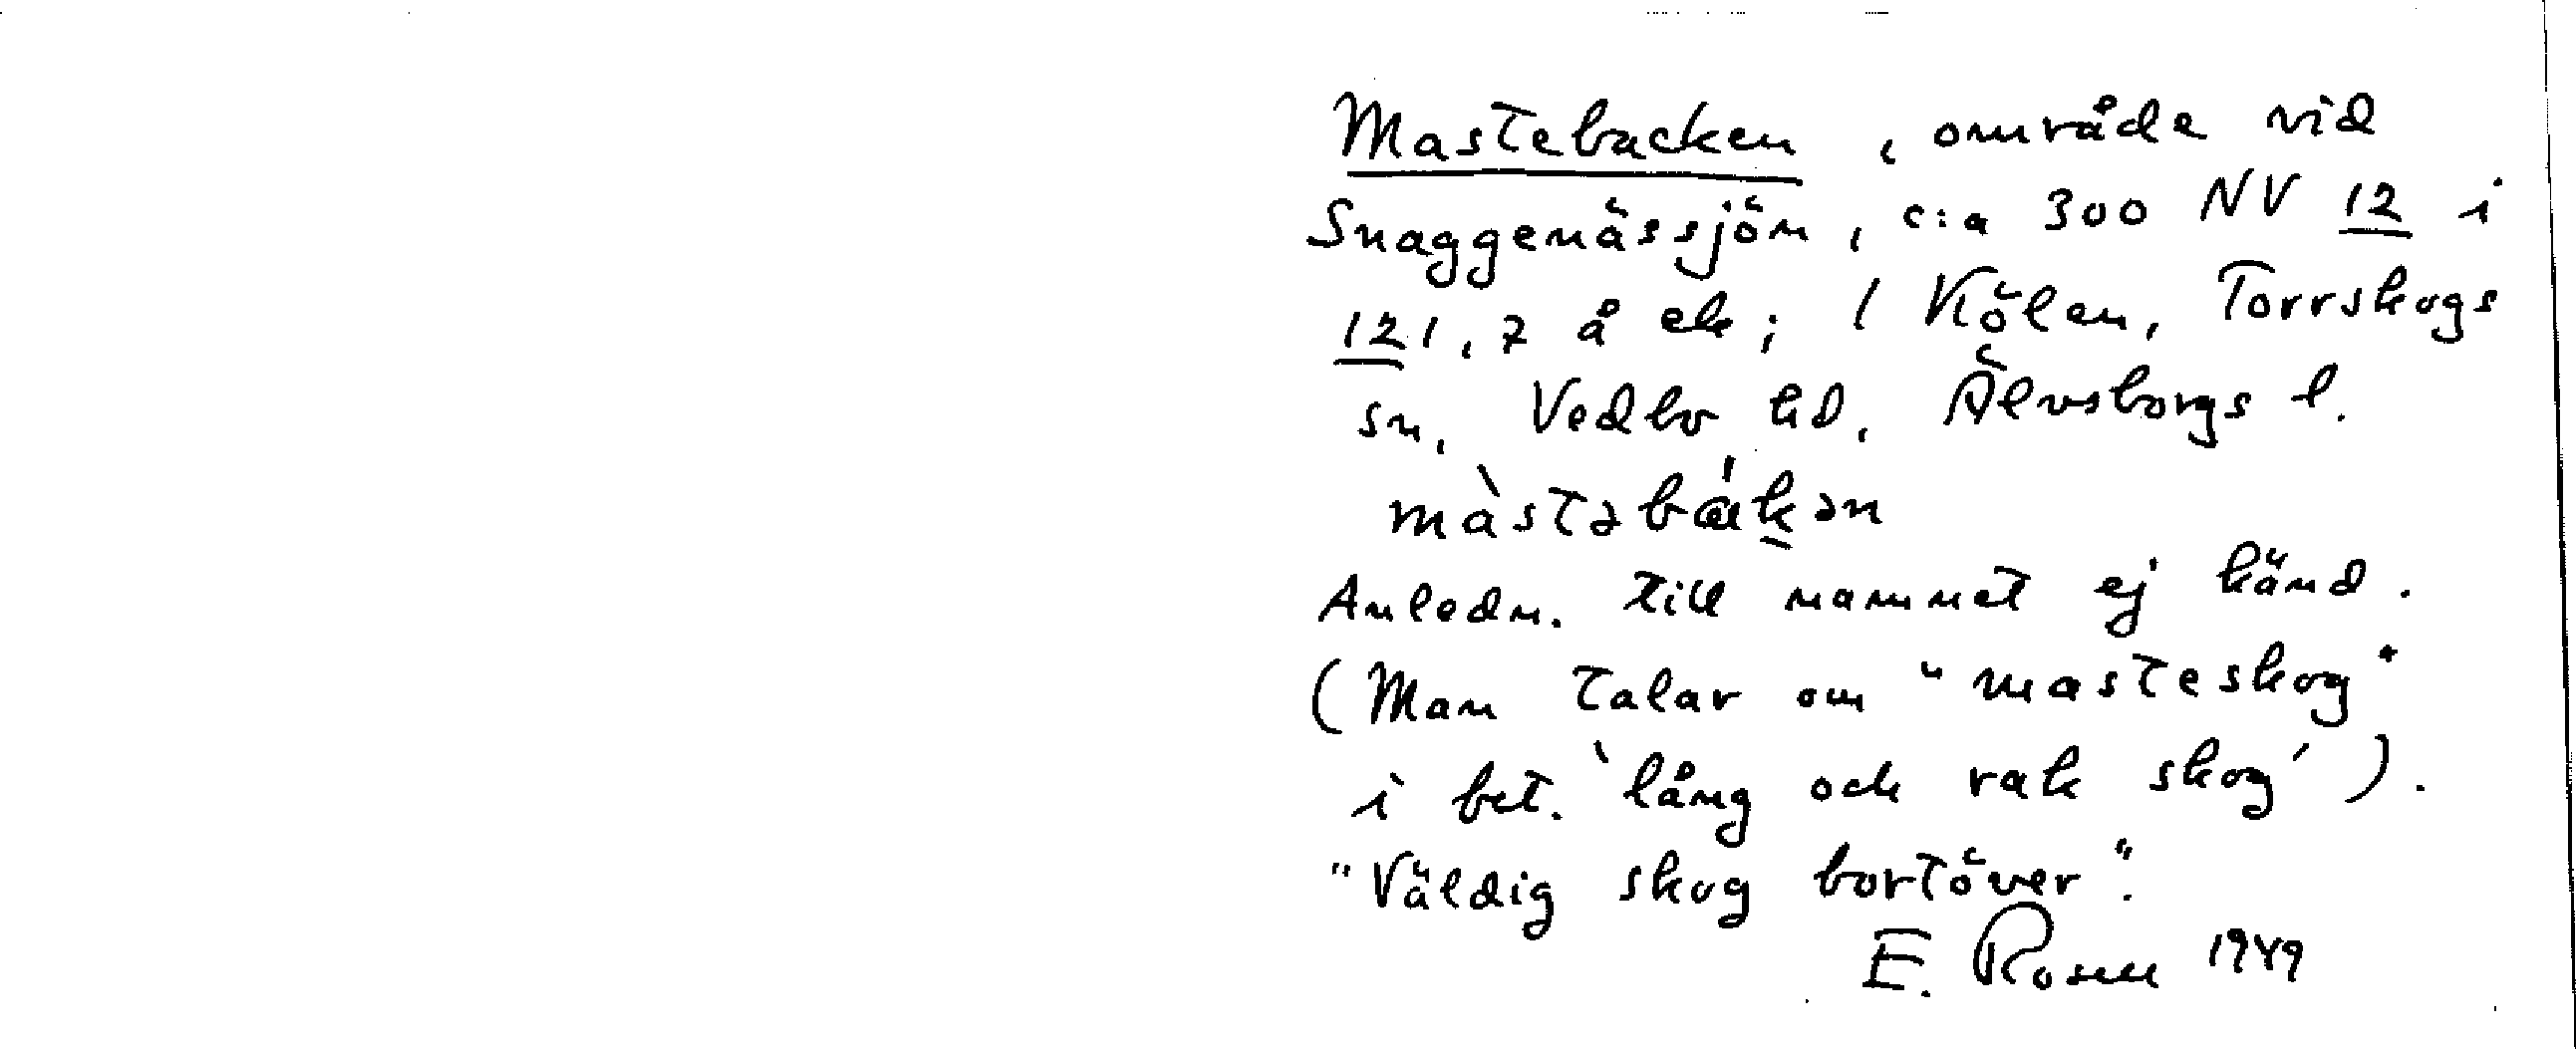 Mastebacken, område vid
Snaggenässjön, c:a 300 NV 12 i
121,7 å ek; 1 Kölen, Torrskogs
sn, Vedbo hd, Älvsborgs l.
màstəbákən
Anledn. till namnet ej känd.
(Man talar om "masteskog"
i bet. 'lång och rak skog').
"Väldig skog bortöver".
E. Rosell 1949